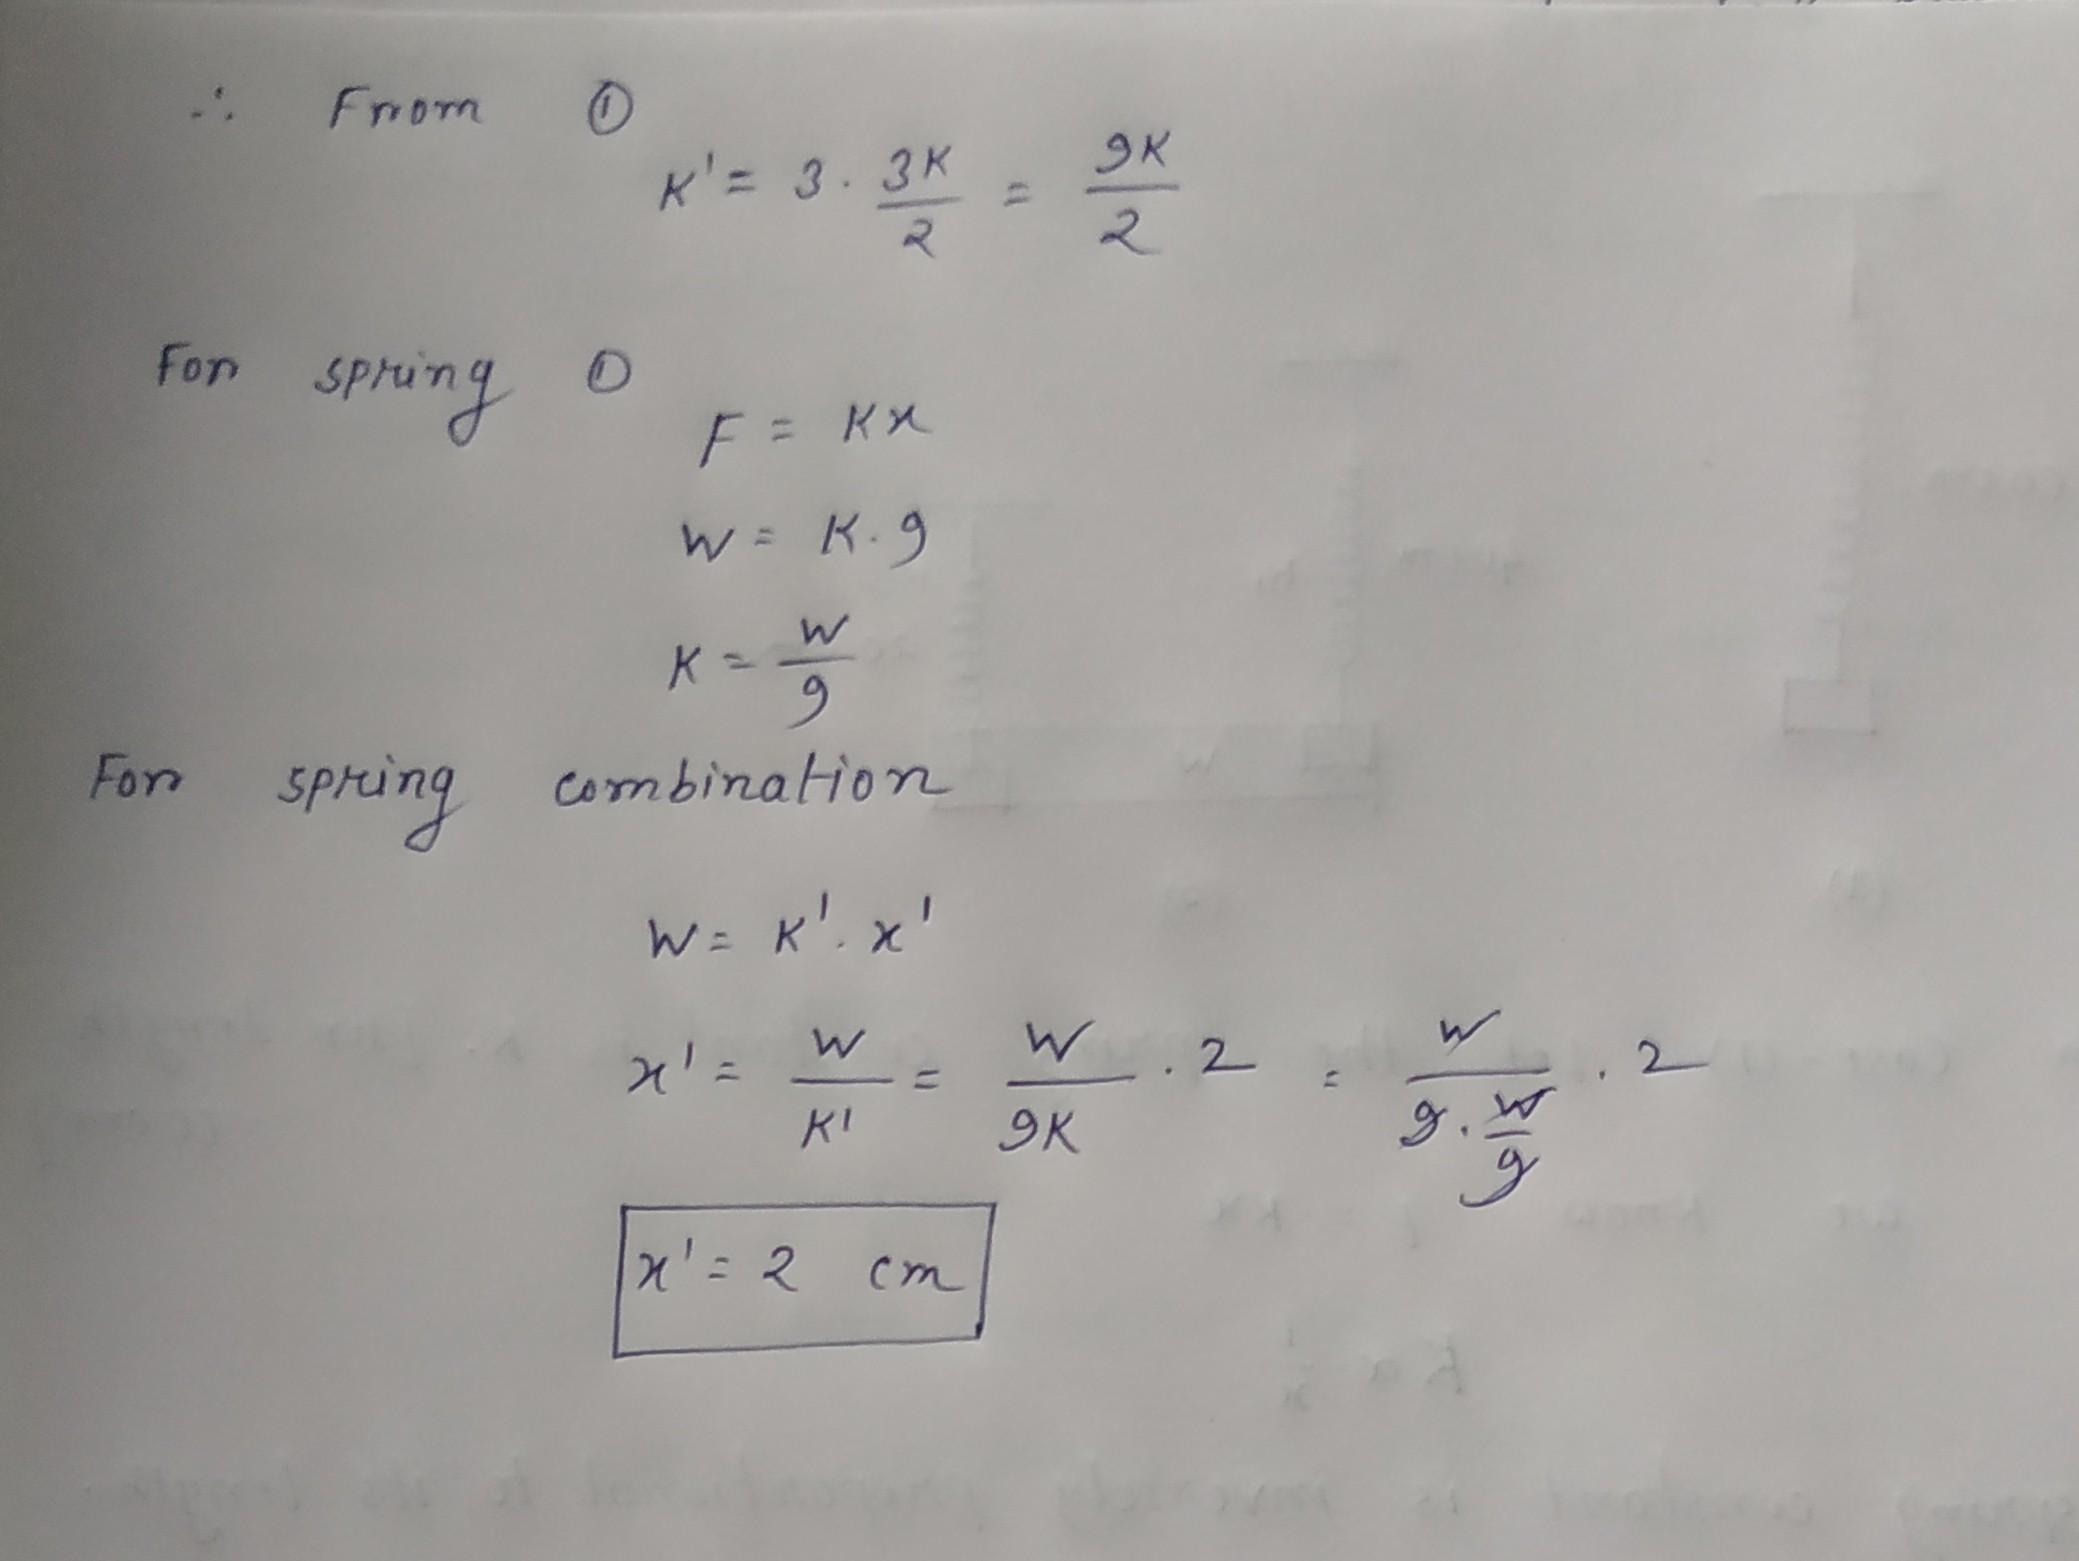 ∴ From ①
K' = 3 . 3K/2 = 9K/2
For spring ①
F = Kx
W = K . 9
K = W/9
For spring combination
W = K' . x'
x' = W/K' = W/9K . 2 = W/(9 . W/9) . 2
x' = 2 cm